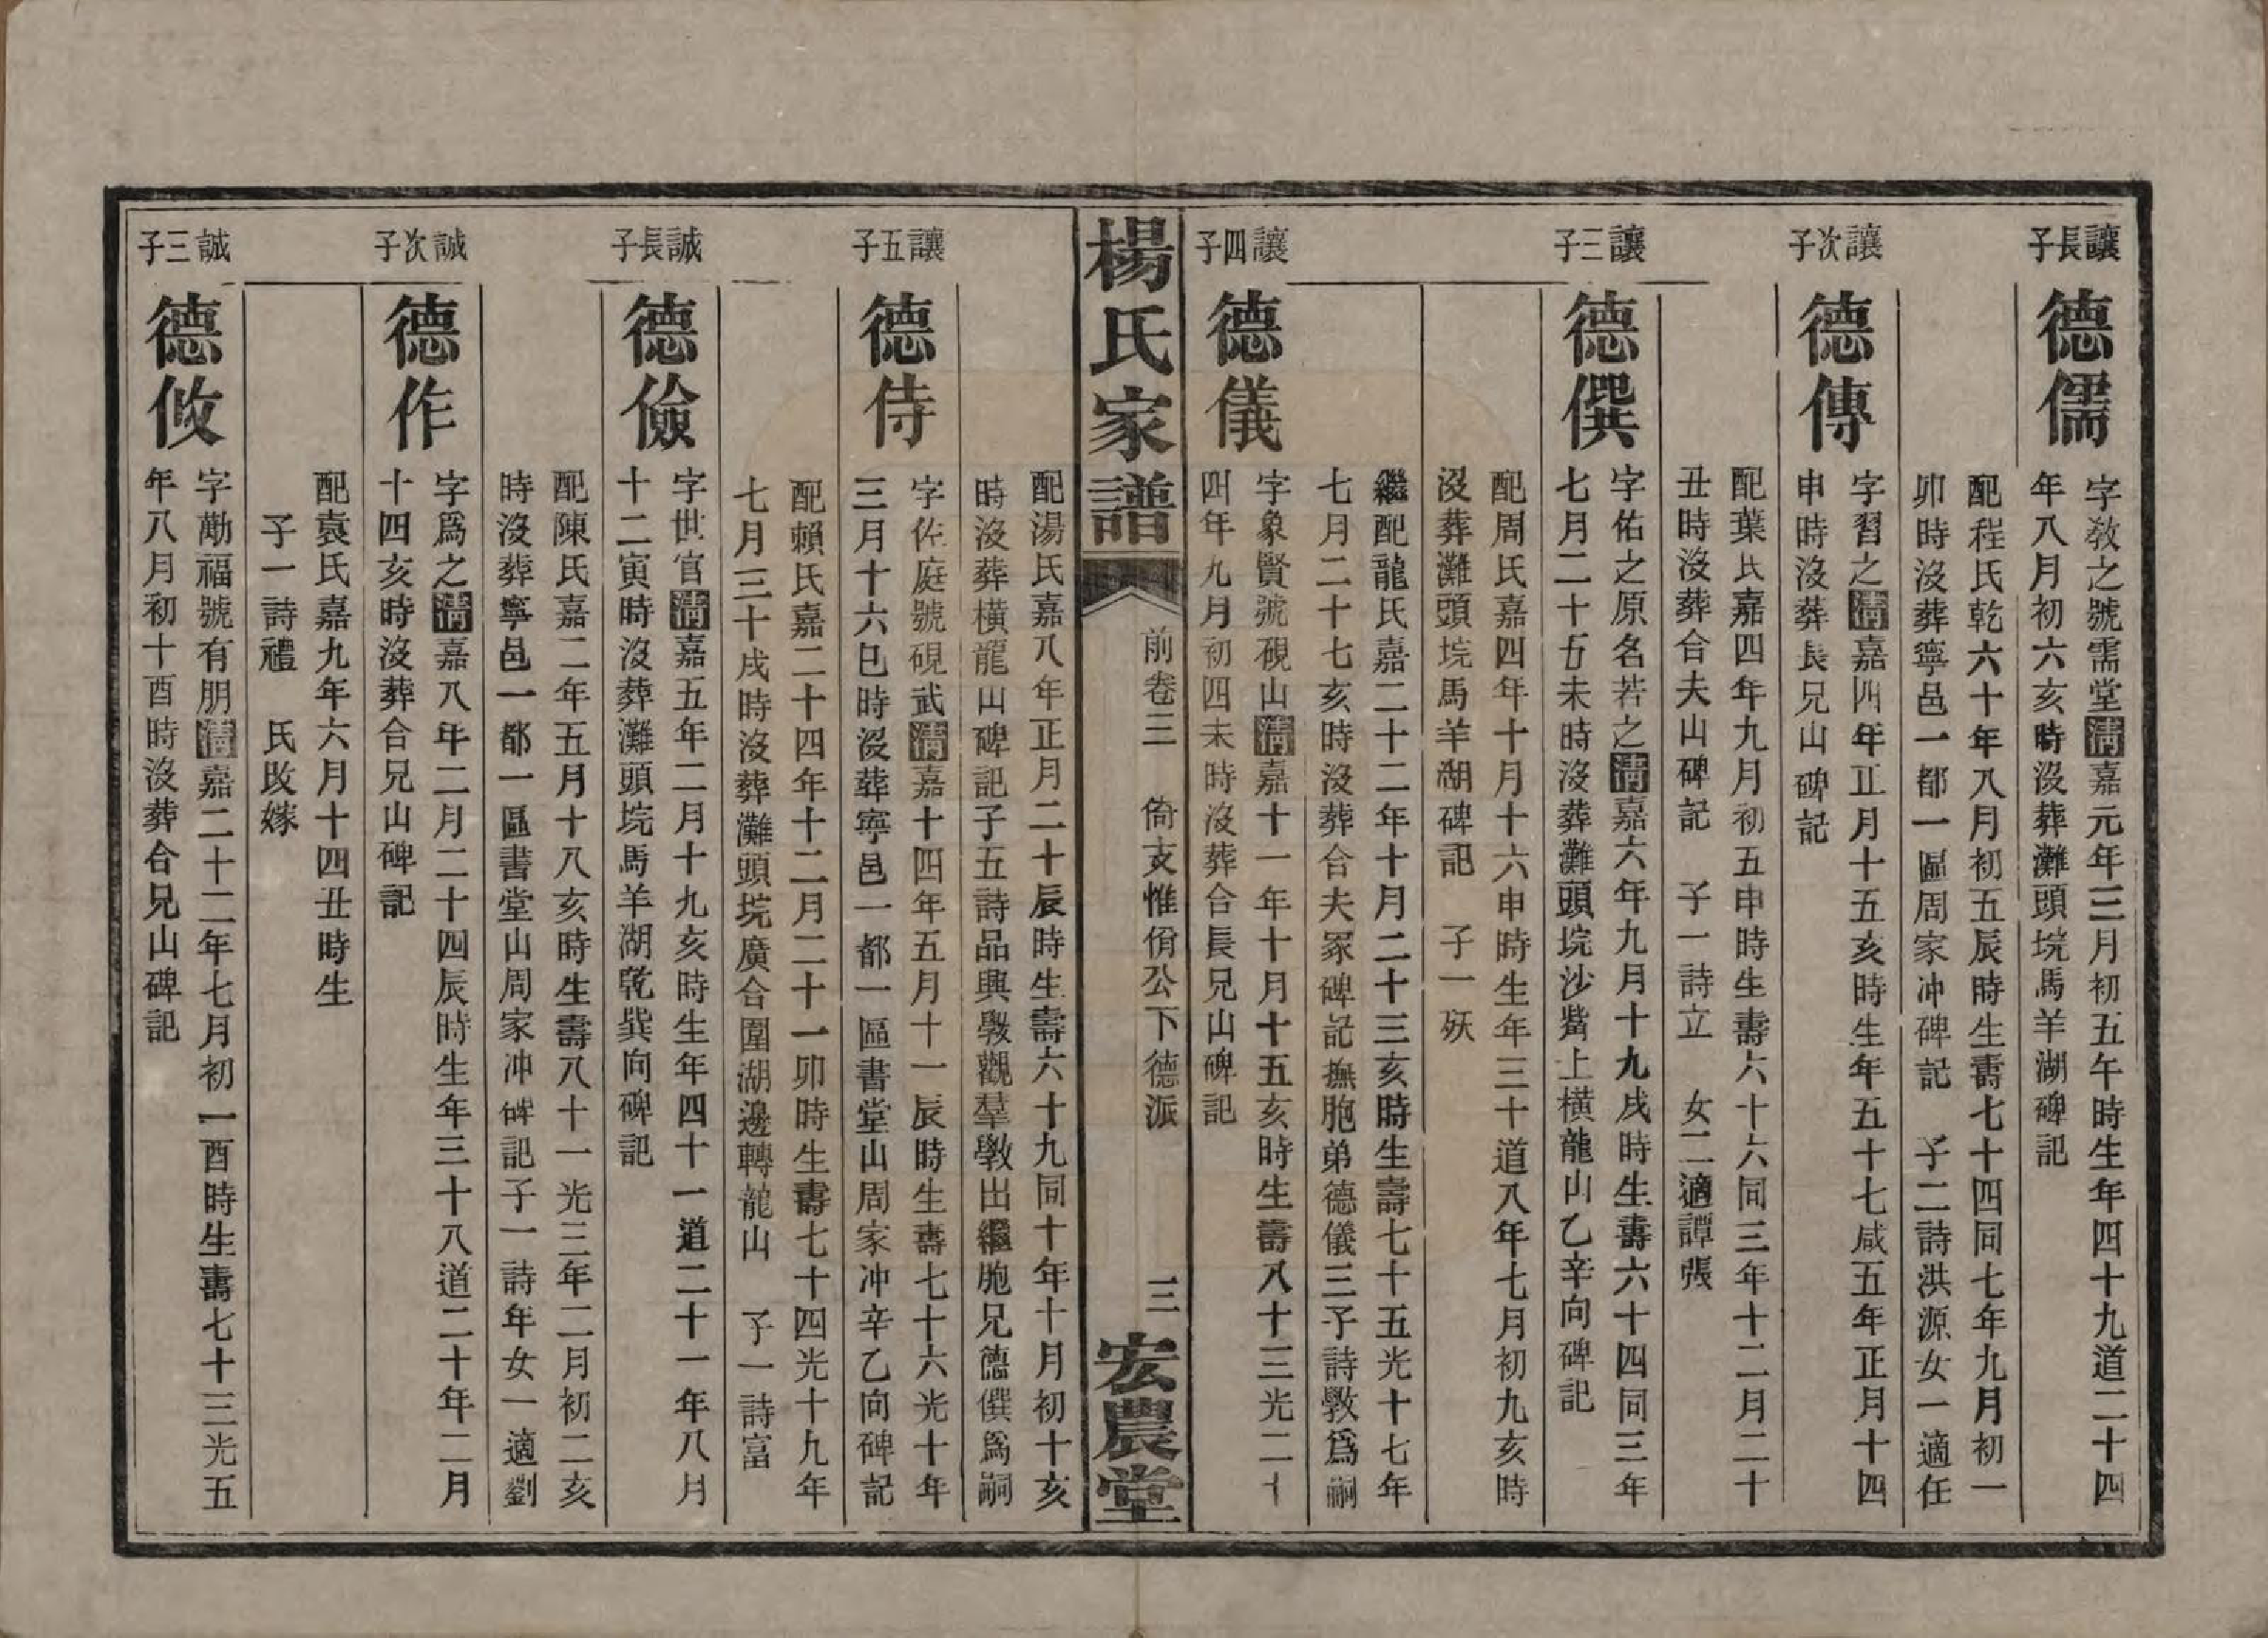 讓長子
德儒
字敎之號需堂清嘉元年三月初五午時生年四十九道二十四
年八月初六亥時沒葬灘頭垸馬羊湖碑記
配程氏乾六十年八月初五辰時生壽七十四同七年九月初一
卯時沒葬寧邑一都一區周家冲碑記　子二詩洪源女一適任
讓次子
德傳
字習之清嘉四年正月十五亥時生年五十七咸五年正月十四
申時沒葬長兄山碑記
配葉氏嘉四年九月初五申時生壽六十六同三年十二月二十
丑時沒葬合夫山碑記　子一詩立　女二適譚張
讓三子
德僎
字佑之原名若之清嘉六年九月十九戌時生壽六十四同三年
七月二十五未時沒葬灘頭垸沙觜上橫龍山乙辛向碑記
配周氏嘉四年十月十六申時生年三十道八年七月初九亥時
沒葬灘頭垸馬羊湖碑記　子一殀
繼配龍氏嘉二十二年十月二十三亥時生壽七十五光十七年
七月二十七亥時沒葬合夫冢碑記撫胞弟德儀三子詩斆爲嗣
讓四子
德儀
字象賢號硯山清嘉十一年十月十五亥時生壽八十三光二十
四年九月初四未時沒葬合長兄山碑記
楊氏家譜
前卷三　倚支惟佾公下德派
三
宏農堂
配湯氏嘉八年正月二十辰時生壽六十九同十年十月初十亥
時沒葬橫龍山碑記子五詩品興斆觀羣斆出繼胞兄德僎爲嗣
讓五子
德侍
字佐庭號硯武清嘉十四年五月十一辰時生壽七十六光十年
三月十六巳時沒葬寧邑一都一區書堂山周家冲辛乙向碑記
配賴氏嘉二十四年十二月二十一卯時生壽七十四光十九年
七月三十戌時沒葬灘頭垸廣合圍湖邊轉龍山　子一詩富
誠長子
德儉
字世官清嘉五年二月十九亥時生年四十一道二十一年八月
十二寅時沒葬灘頭垸馬羊湖乾巽向碑記
配陳氏嘉二年五月十八亥時生壽八十一光三年二月初二亥
時沒葬寧邑一都一區書堂山周家冲碑記子一詩年女一適劉
誠次子
德作
字爲之清嘉八年二月二十四辰時生年三十八道二十年二月
十四亥時沒葬合兄山碑記
配袁氏嘉九年六月十四丑時生
子一詩禮　氏改嫁
誠三子
德攸
字勱福號有朋清嘉二十二年七月初一酉時生壽七十三光五
年八月初十酉時沒葬合兄山碑記